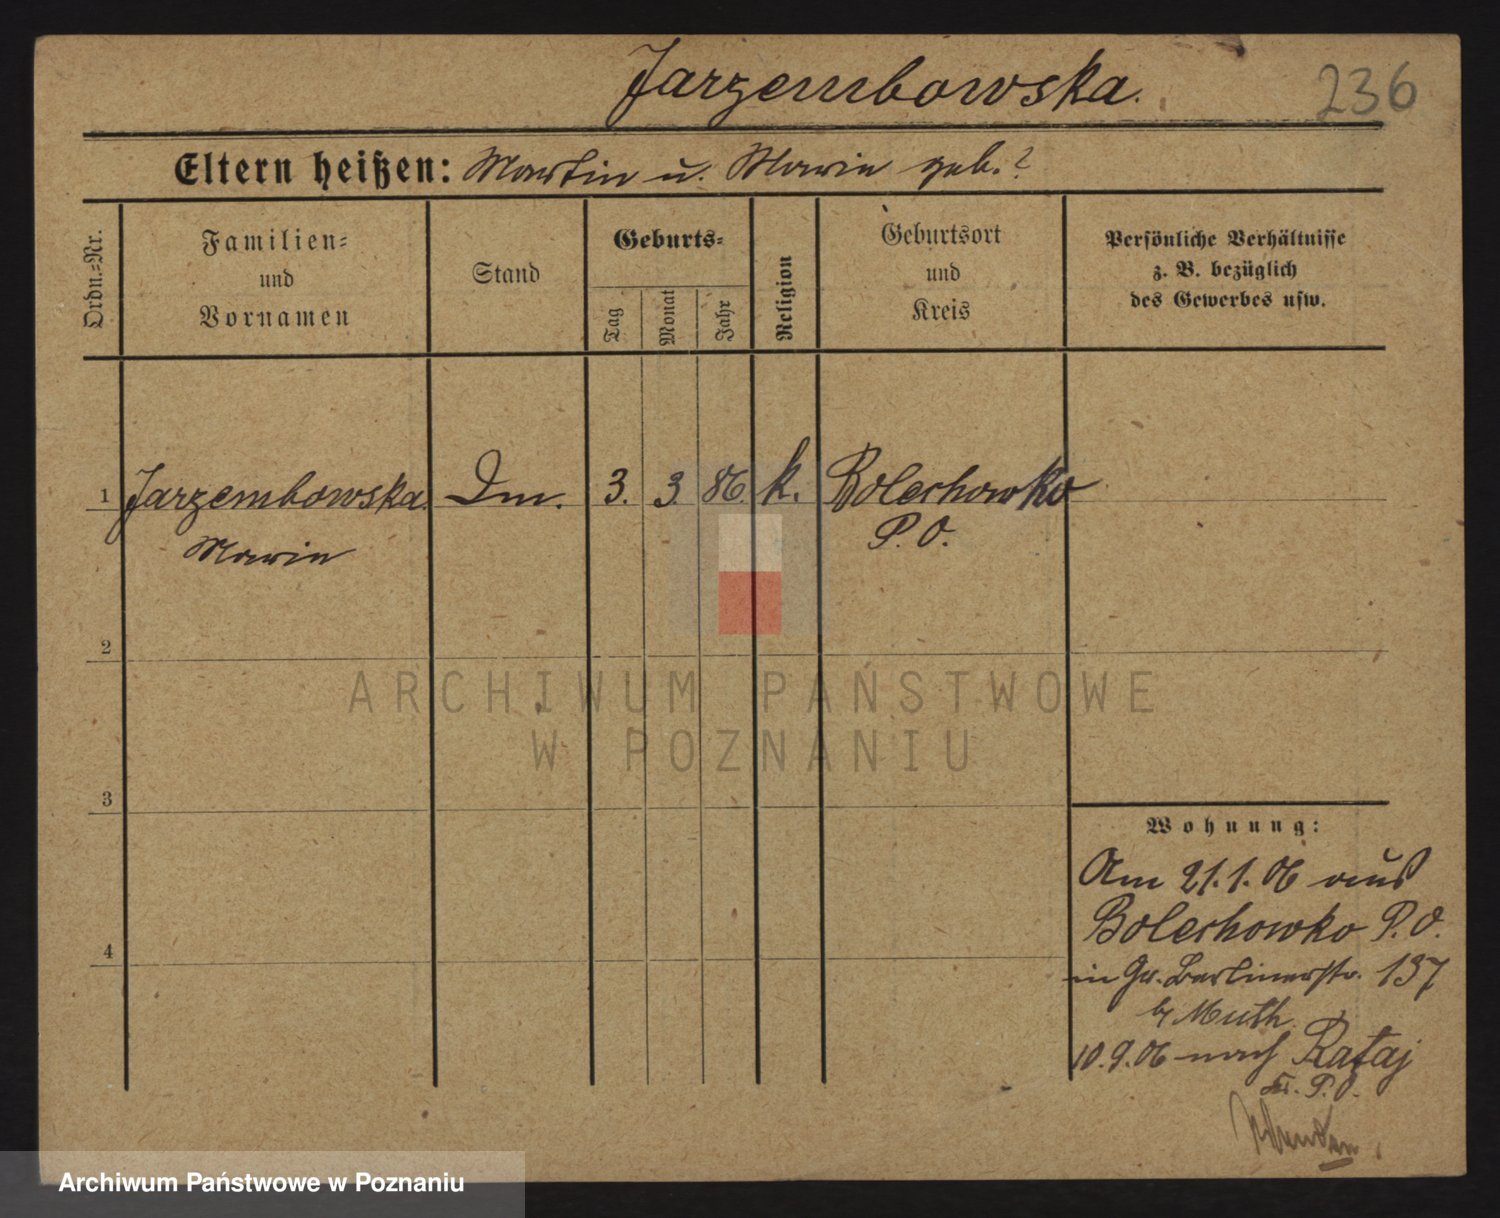 Jarzembowska.
236
Eltern heißen: Martin u. Marie geb. ?
Ordn.-Nr.
Familien-
und
Vornamen
Stand
Geburts-
Tag
Monat
Jahr
Religion
Geburtsort
und
Kreis
Persönliche Verhältnisse
z. B. bezüglich
des Gewerbes usw.
1 Jarzembowska. Dm. 3. 3. 86. k. Bolechowko
Marie P. O.
2
ARCHIWUM PAŃSTWOWE
W POZNANIU
3
Wohnung:
Am 21.1.06 aus
4 Bolechowko P. O.
in Gr. Berlinerstr. 137
b/ Muth
10.9.06 nach Rataj
Kr. P. O.
Archiwum Państwowe w Poznaniu